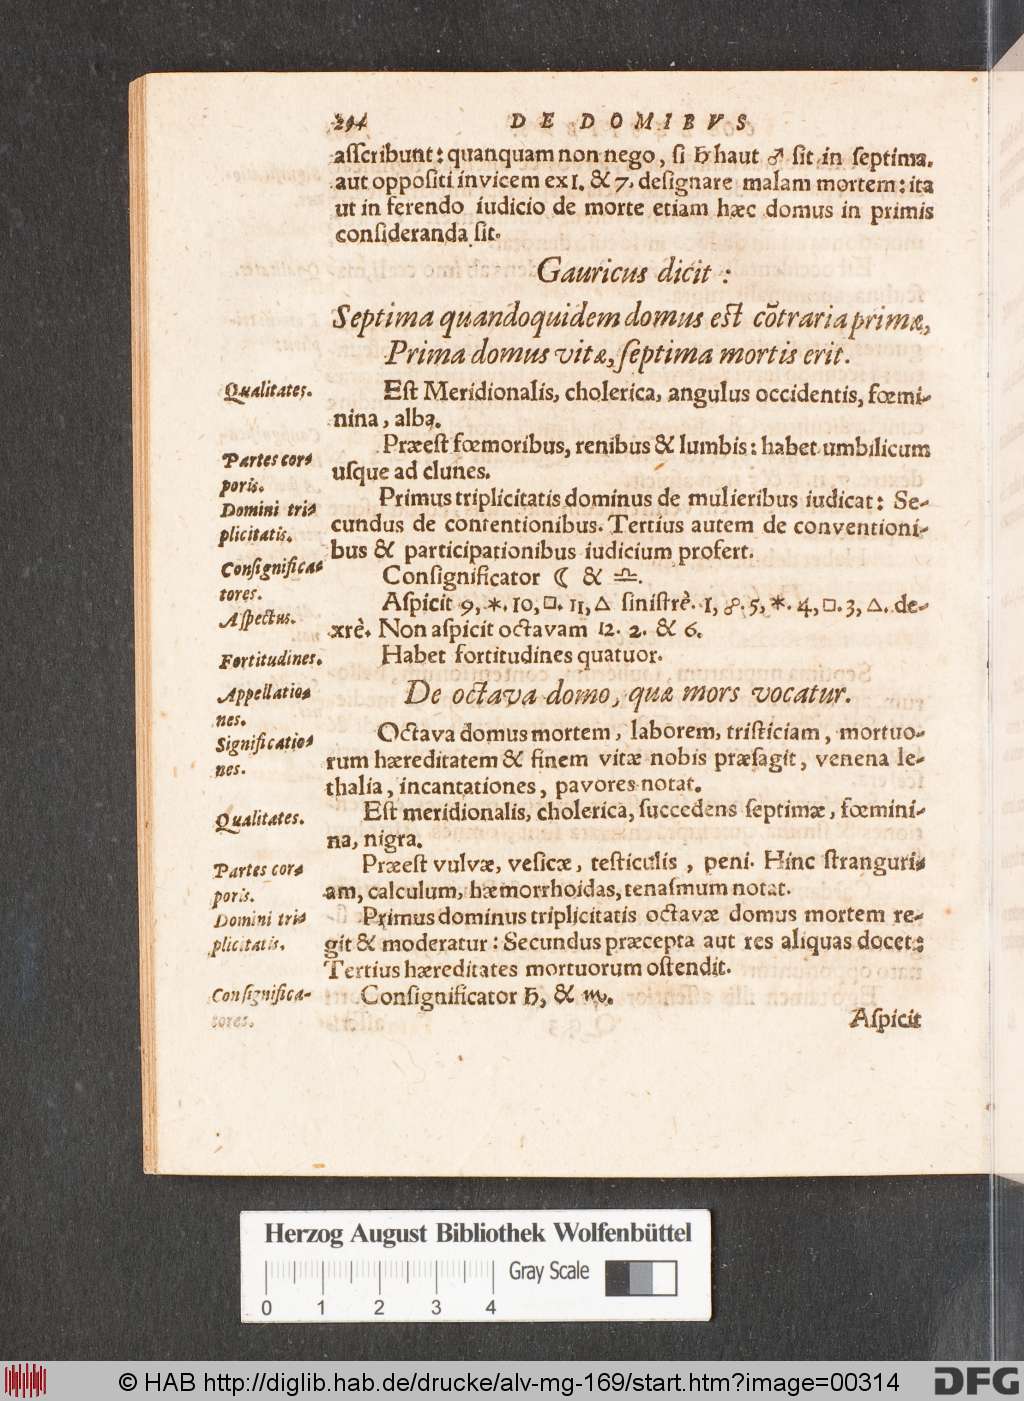 294 DE DOMIBVS
aſſcribunt: quanquam non nego, ſi ♄ haut ♂ ſit in ſeptima.
aut oppoſiti invicem ex 1. & 7. deſignare malam mortem: ita
ut in ferendo iudicio de morte etiam hæc domus in primis
conſideranda ſit.
Gauricus dicit:
Septima quandoquidem domus eſt cõtraria primæ,
Prima domus vitæ, ſeptima mortis erit.
Qualitates.
Eſt Meridionalis, cholerica, angulus occidentis, fœmi-
nina, alba.
Partes cor-
poris.
Præeſt fœmoribus, renibus & lumbis: habet umbilicum
uſque ad clunes.
Domini tri-
plicitatis.
Primus triplicitatis dominus de mulieribus iudicat: Se-
cundus de contentionibus. Tertius autem de conventioni-
bus & participationibus iudicium profert.
Conſignifica-
tores.
Conſignificator ☾ & ♎.
Aſpectus.
Aſpicit 9, ⚹. 10, □. 11, △ ſiniſtrè. 1, ☍. 5, ⚹. 4, □. 3, △. de-
xrè. Non aſpicit octavam 12. 2. & 6.
Fortitudines.
Habet fortitudines quatuor.
De octava domo, quæ mors vocatur.
Appellatio-
nes.
Significatio-
nes.
Octava domus mortem, laborem, triſticiam, mortuo-
rum hæreditatem & finem vitæ nobis præſagit, venena le-
thalia, incantationes, pavores notat.
Qualitates.
Eſt meridionalis, cholerica, ſuccedens ſeptimæ, fœmini-
na, nigra.
Partes cor-
poris.
Præeſt vulvæ, veſicæ, teſticulis, peni. Hinc ſtranguri-
am, calculum, hæmorrhoidas, tenaſmum notat.
Domini tri-
plicitatis.
Primus dominus triplicitatis octavæ domus mortem re-
git & moderatur: Secundus præcepta aut res aliquas docet:
Tertius hæreditates mortuorum oſtendit.
Conſignifica-
tores.
Conſignificator ♄, & ♏.
Aſpicit
Herzog August Bibliothek Wolfenbüttel
Gray Scale
0 1 2 3 4
© HAB http://diglib.hab.de/drucke/alv-mg-169/start.htm?image=00314
DFG